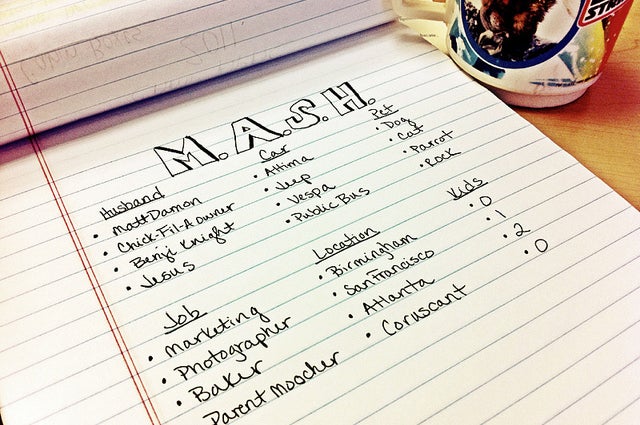 M.A.S.H.
Husband
• Matt Damon
• Chick-Fil-A owner
• Benji Knight
• Jesus
Car
• Altima
• Jeep
• Vespa
• Public Bus
Pet
• Dog
• Cat
• Parrot
• Rock
Job
• Marketing
• Photographer
• Baker
Parent Moocher
Location
• Birmingham
• San Francisco
• Atlanta
• Coruscant
Kids
• 0
• 1
• 2
• 0